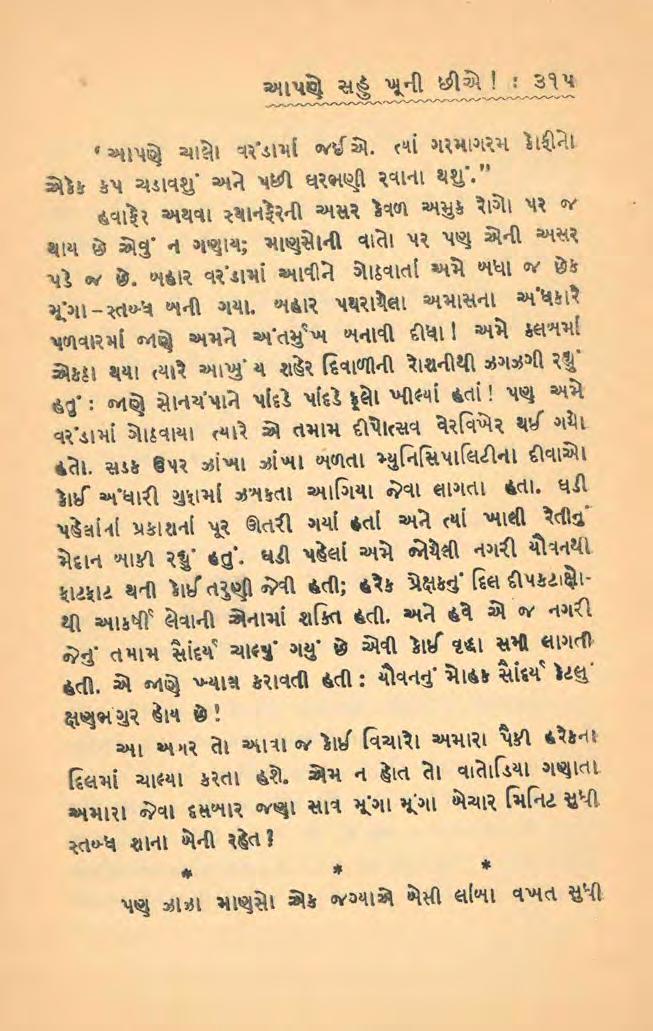 આપણે સહુ ખૂની છીએ ! : ૩૧૫
‘ આપણે ચાલો વરંડામાં જઈએ. ત્યાં ગરમાગરમ કૉફીનો
એકેક કપ ચડાવશું અને પછી ઘરભણી રવાના થશું.”
હવાફેર અથવા સ્થાનફેરની અસર કેવળ અમુક રોગો પર જ
થાય છે એવું ન ગણાય; માણસોની વાતો પર પણ એની અસર
પડે જ છે. બહાર વરંડામાં આવીને ગોઠવાતાં અમે બધા જ છેક
મૂંગા–સ્તબ્ધ બની ગયા. બહાર પથરાયેલા અમાસના અંધકારે
પળવારમાં જાણે અમને અંતર્મુખ બનાવી દીધા! અમે ક્લબમાં
એકઠા થયા ત્યારે આખું ય શહેર દિવાળીની રોશનીથી ઝગઝગી રહ્યું
હતું : જાણે સોનચંપાને પાંદડે પાંદડે ફૂલો ખીલ્યાં હતાં! પણ અમે
વરંડામાં ગોઠવાયા ત્યારે એ તમામ દીપોત્સવ વેરવિખેર થઈ ગયો
હતો. સડક ઉપર ઝાંખા ઝાંખા બળતા મ્યુનિસિપાલિટીના દીવાઓ
કોઈ અંધારી ગુફામાં ઝબકતા આગિયા જેવા લાગતા હતા. ઘડી
પહેલાંનાં પ્રકાશનાં પૂર ઊતરી ગયાં હતાં અને ત્યાં ખાલી રેતીનું
મેદાન બાકી રહ્યું હતું. ઘડી પહેલાં અમે જોયેલી નગરી યૌવનથી
ફાટફાટ થતી કોઈ તરુણી જેવી હતી; હરેક પ્રેક્ષકનું દિલ દીપકટાક્ષો-
થી આકર્ષી લેવાની એનામાં શક્તિ હતી. અને હવે એ જ નગરી
જેનું તમામ સૌંદર્ય ચાલ્યું ગયું છે એવી કોઈ વૃદ્ધા સમી લાગતી
હતી. એ જાણે ખ્યાલ કરાવતી હતી : યૌવનનું મોહક સૌંદર્ય કેટલું
ક્ષણભંગુર હોય છે!
આ અગર તો આવા જ કોઈ વિચારો અમારા પૈકી હરેકના
દિલમાં ચાલ્યા કરતા હશે. એમ ન હોત તો વાતોડિયા ગણાતા
અમારા જેવા દસબાર જણા સાવ મૂંગા મૂંગા બેચાર મિનિટ સુધી
સ્તબ્ધ શાના બેની રહેત?
* * *
પણ ઝાઝા માણસો એક જગ્યાએ બેસી લાંબા વખત સુધી